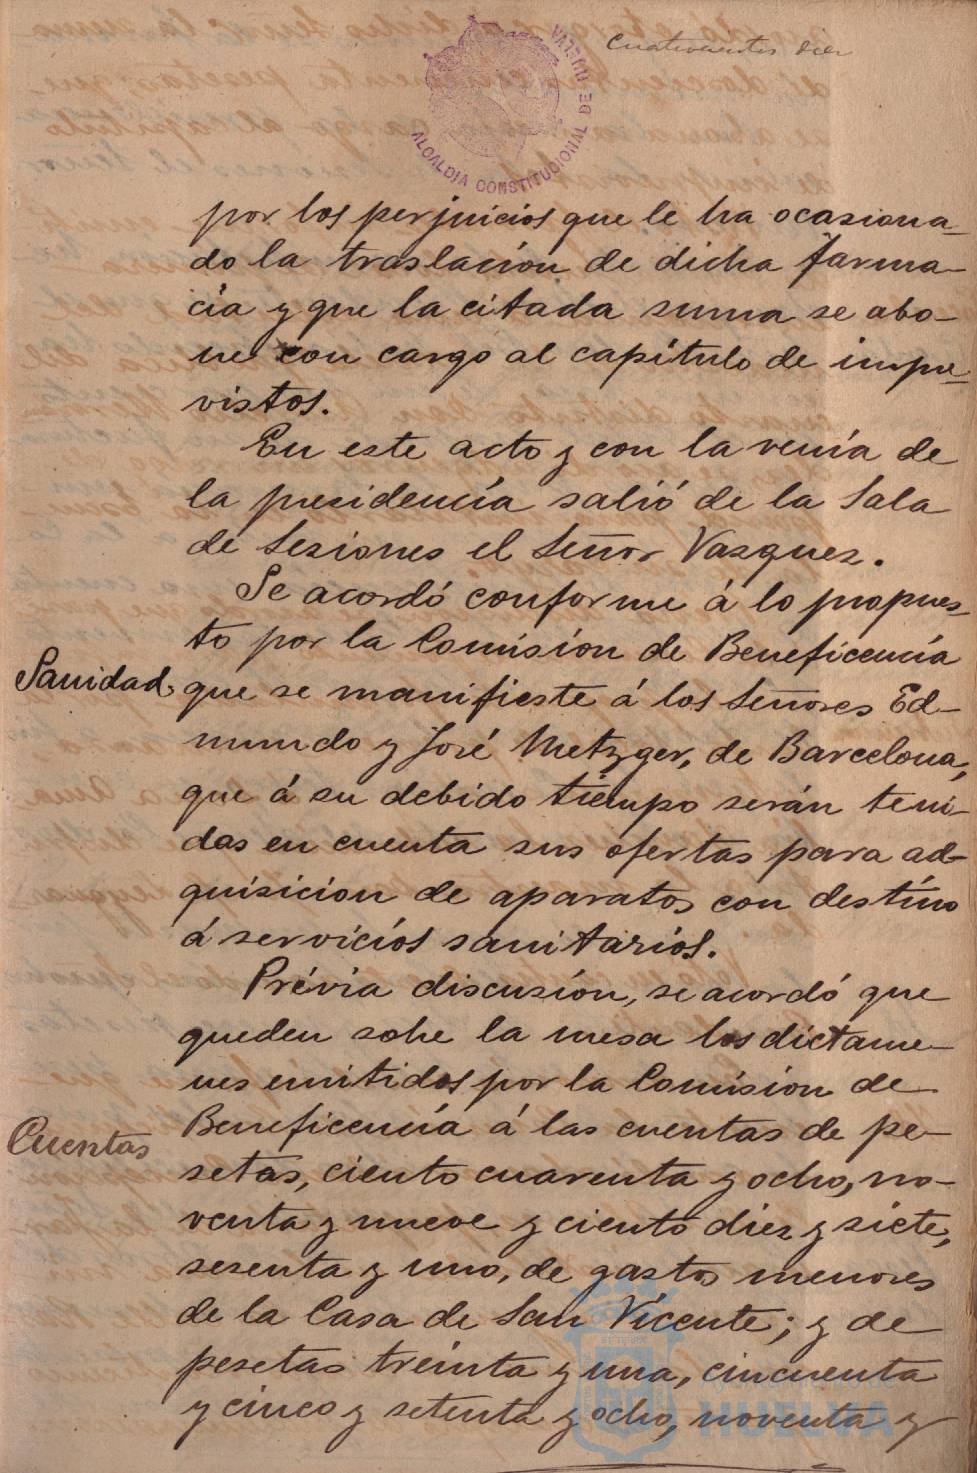 Cuatrocientos diez
ALCALDIA CONSTITUCIONAL DE HUELVA
por los perjuicios que le ha ocasiona-
do la traslación de dicha farma-
cia y que la citada suma se abo-
ne con cargo al capítulo de impre-
vistos.
En este acto y con la venía de
la presidencía salió de la Sala
de Sesiones el Señor Vazquez.
Se acordó conforme á lo propues-
to por la Comisión de Beneficencía
Sanidad que se manifieste á los Señores Ed-
mundo y José Metzger, de Barcelona,
que á su debido tiempo serán teni-
das en cuenta sus ofertas para ad-
quisicion de aparatos con destino
á servicios sanitarios.
Prévia discusión, se acordó que
queden sobre la mesa los dictame-
nes emitidos por la Comisión de
Cuentas Beneficencía á las cuentas de pe-
setas, ciento cuarenta y ocho, no-
venta y nueve y ciento diez y siete,
sesenta y uno, de gastos menores
de la Casa de San Vicente; y de
pesetas treinta y una, cincuenta
y cinco y setenta y ocho, noventa y
HUELVA